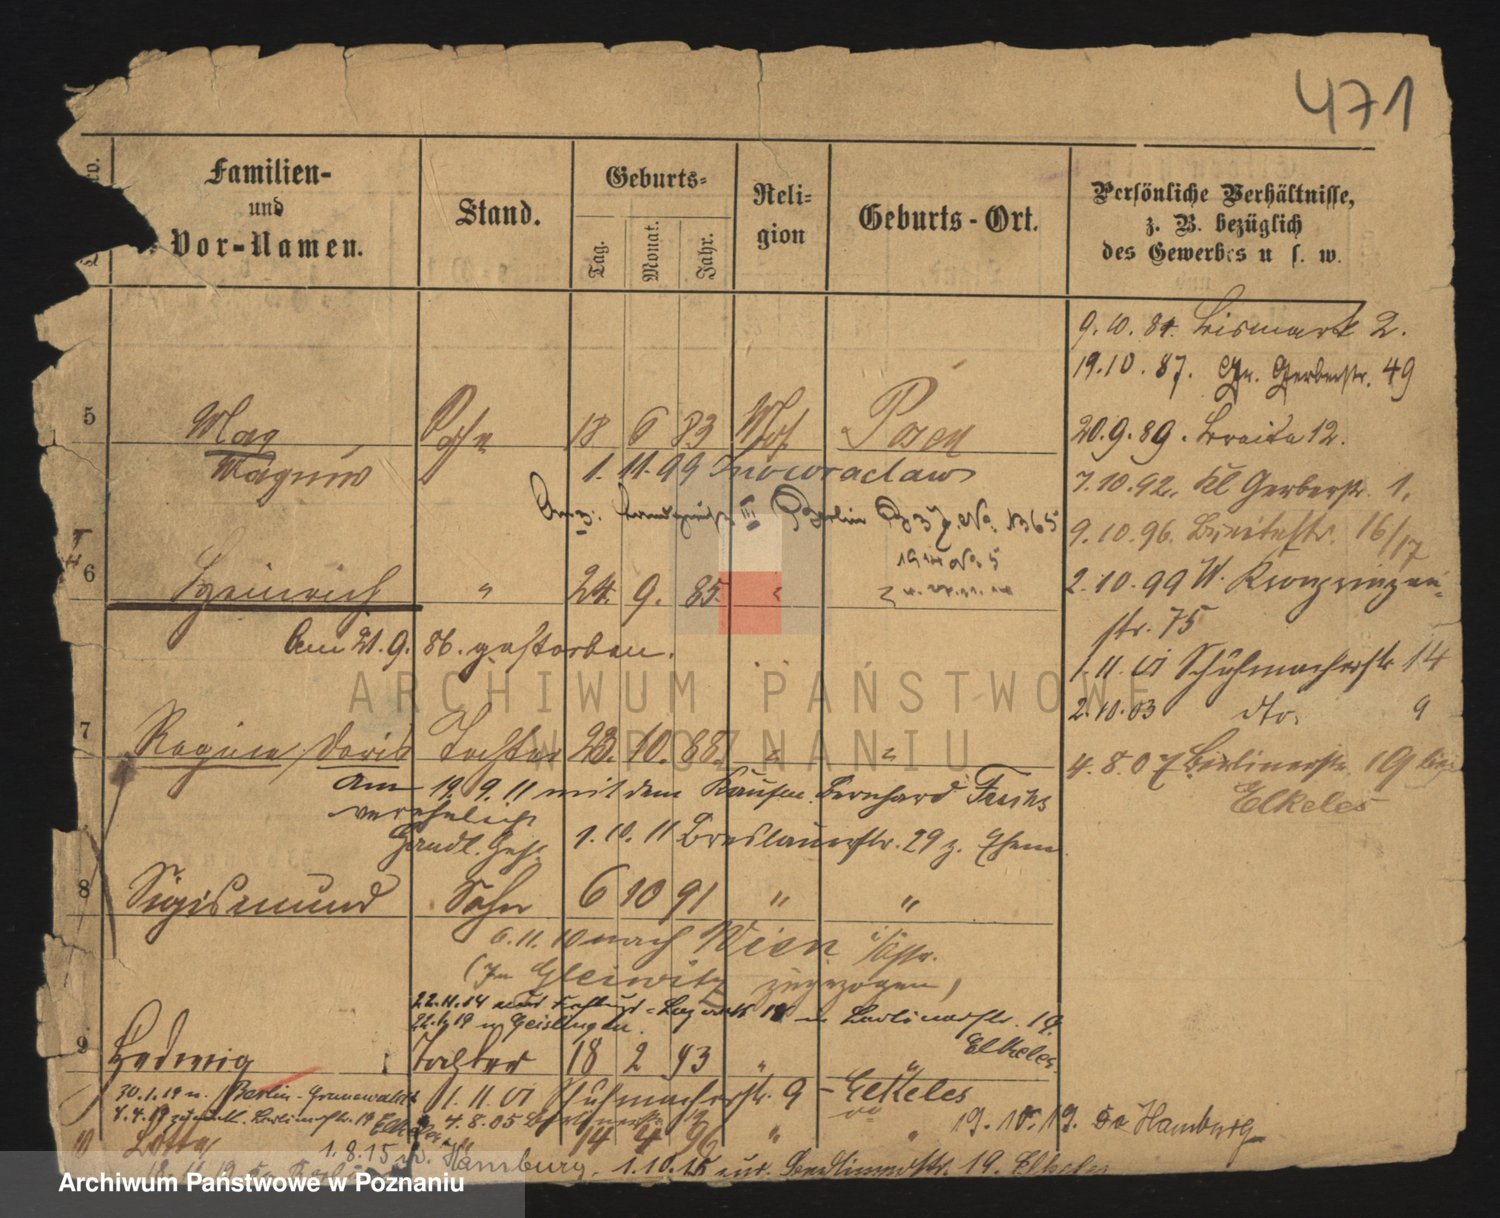 471
Familien-
und
Vor-Namen.
Stand.
Geburts-
Tag.
Monat.
Jahr.
Reli-
gion
Geburts-Ort.
Persönliche Verhältnisse,
z. B. bezüglich
des Gewerbes u s. w.
9.10.84. Bismark 2.
19.10.87. Gr. Gerberstr. 49
5
Max
Sohn
18 6 83 Mos. Posen
20.9.89. Breite 12.
Magnus
1.11.99 Inowraclaw
7.10.92. Kl Gerberstr. 1.
Berlin No. 1365
9.10.96. Breitestr. 16/17
6
Heinrich
" 24. 9. 85. "
2.10.99 W. Kronprinzen-
str. 75
Am 21.9.86. gestorben.
1.11.01 Schuhmacherstr 14
2.10.03 dto. 9
7
Regina, Doris Tochter 23. 10. 88. " "
4.8.07 Berlinerstr. 19 bei
Elkeles
Am 19.9.11 mit dem Kaufm. Bernhard
verehelicht
Handl. Geh. 1.10.11 Breslauerstr. 29 z. Ehem
8
Sigismund Sohn 6 10 91 " "
6.11.10 nach Wien
(In Gleiwitz zugezogen)
22.11.14 Berlinerstr. 19
22.1.19 n Geislingen. Elkeles
9
Hedwig Tochter 18 2 93 " "
30.1.19 n. Berlin-Grunewald 1.11.01 Schuhmacherstr. 9 - Elkeles
4.4.19 zurück. Berlinerstr. 19 Elkeles 4.8.05 Berlinerstr. 19
19.10.19. Hamburg
10
Lotte " 14 4 96 " "
1.8.15 n. Hamburg. 1.10.15 zur. Berlinerstr. 19. Elkeles
ARCHIWUM PAŃSTWOWE
W POZNANIU
Archiwum Państwowe w Poznaniu